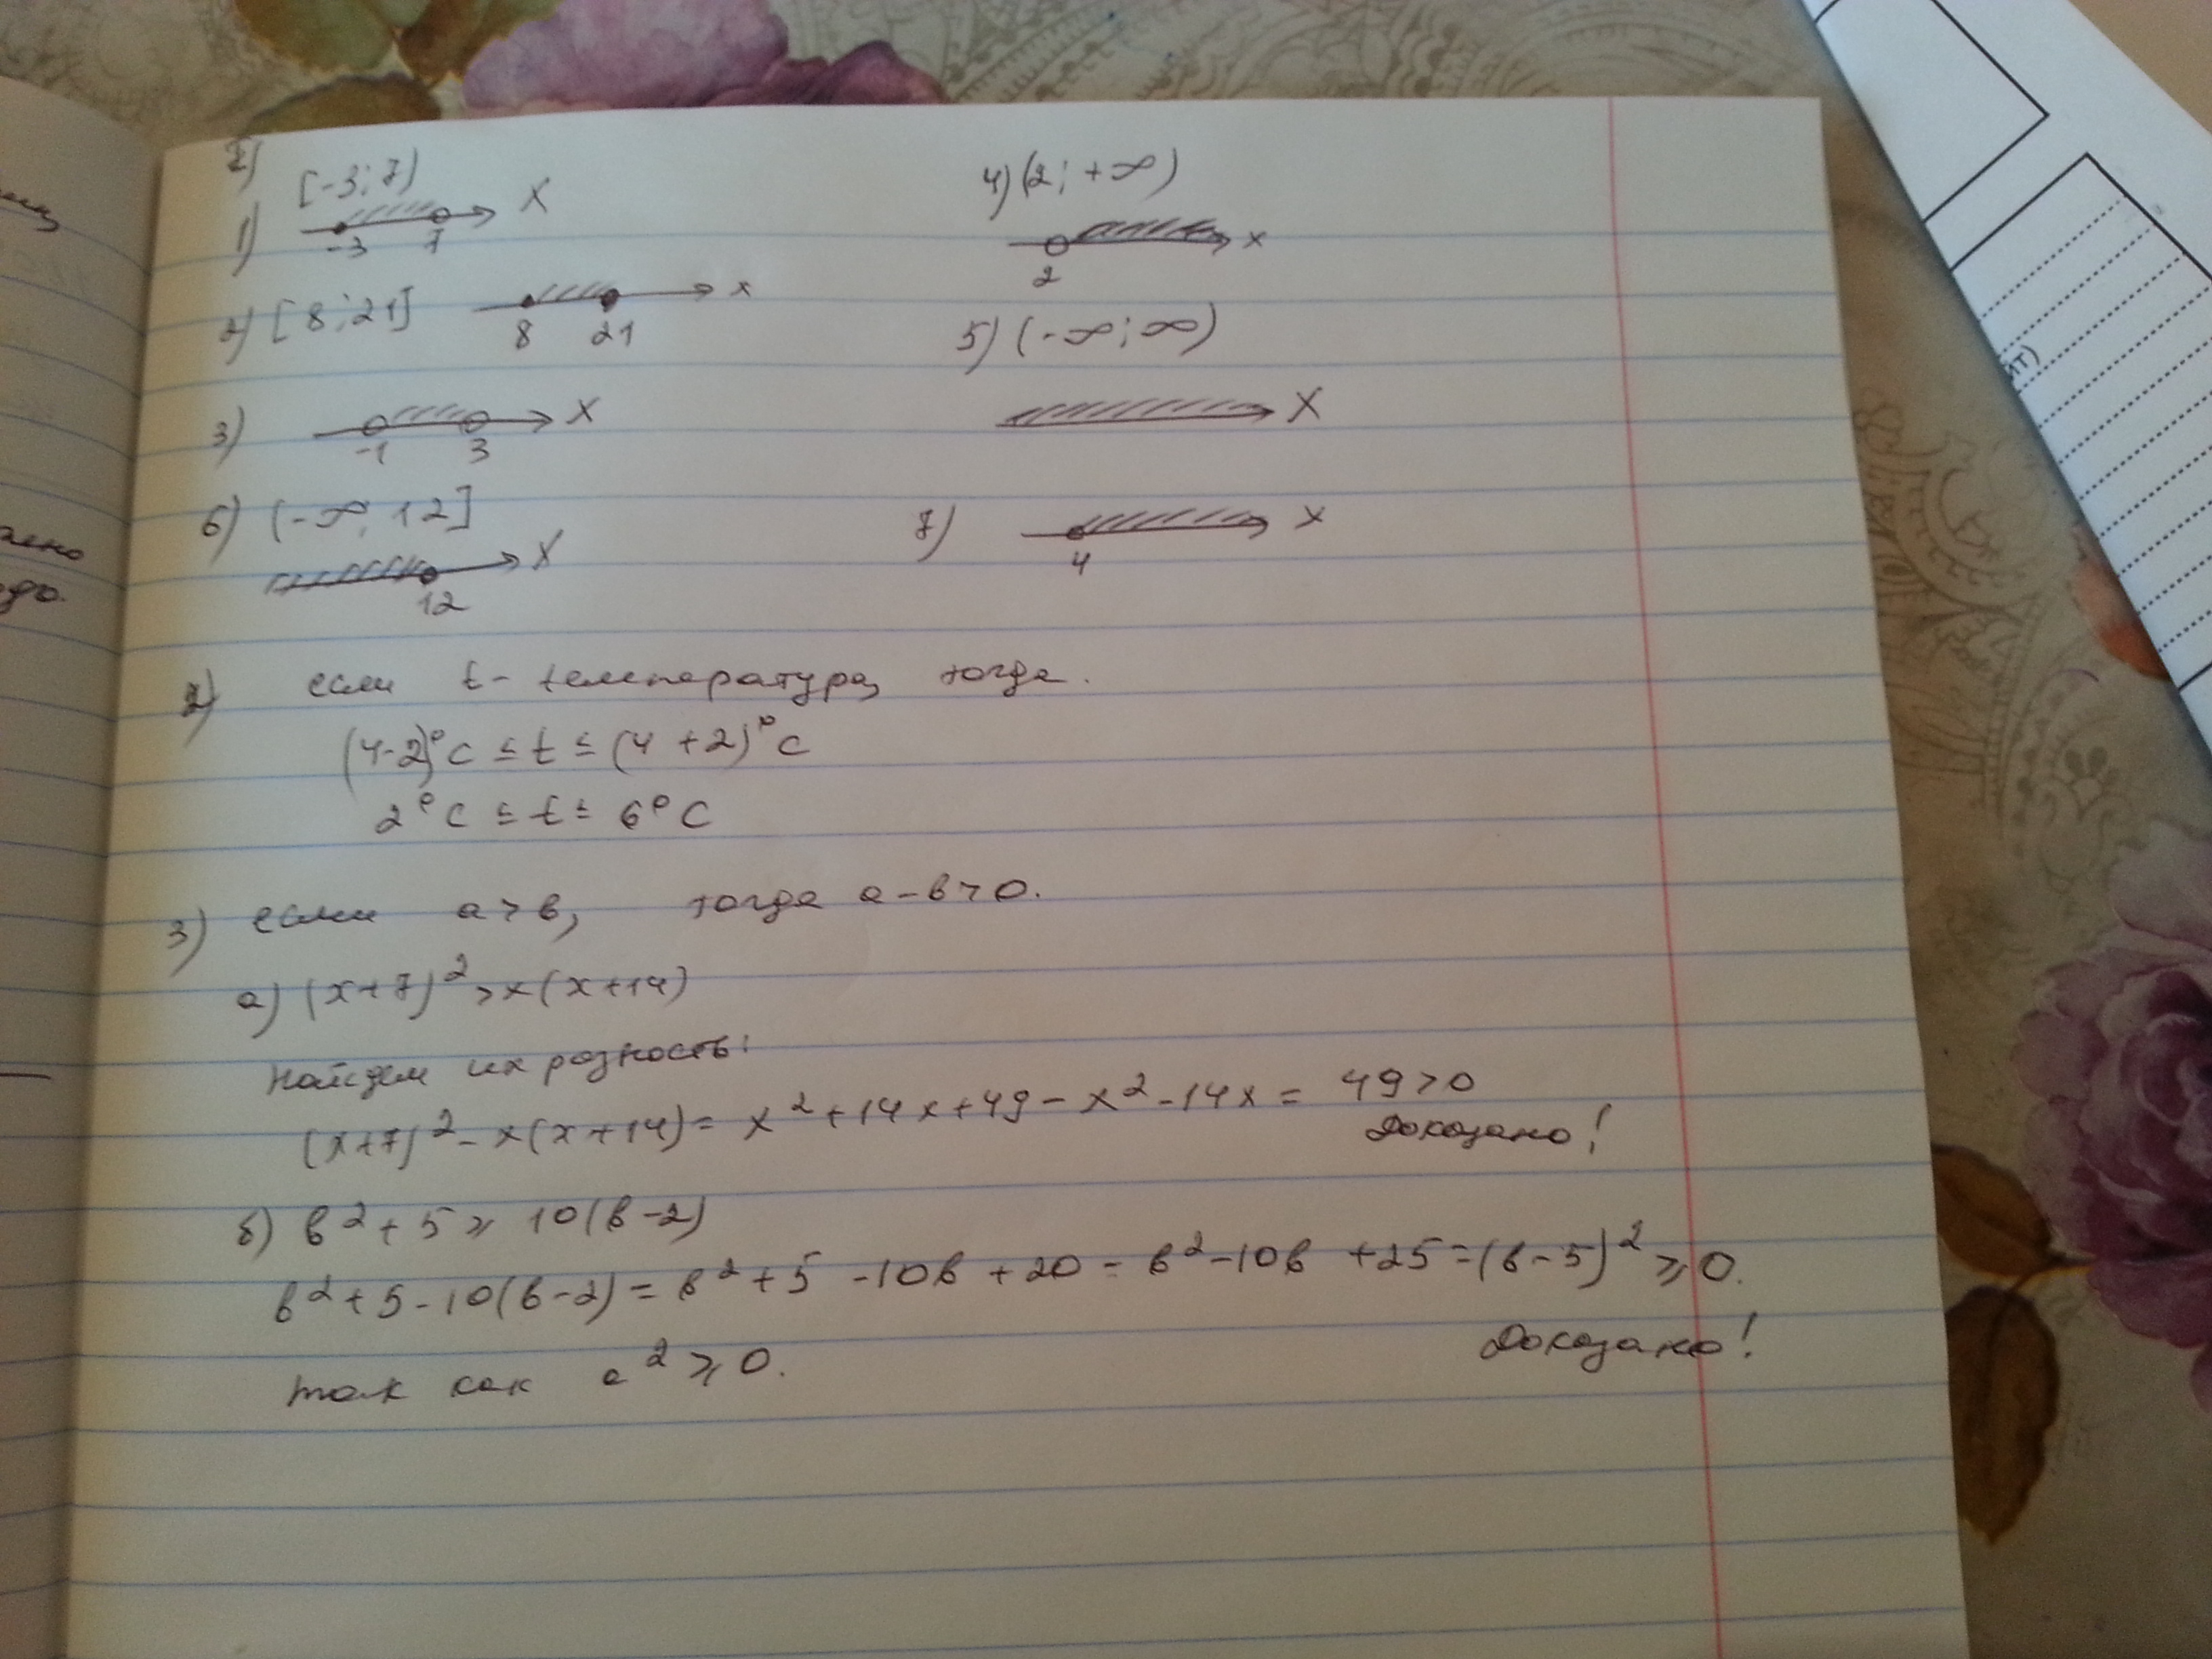 1)
[-3; 7)
1) -3 7 X
2) [8; 21] 8 21 x
3) -1 3 X
4) (2; +∞)
2 x
5) (-∞; ∞)
X
6) (-∞, 12]
12 X
7) 4 x
2) если t - температура, тогда.
(4-2)°C ≤ t ≤ (4+2)°C
2°C ≤ t ≤ 6°C
3) если a > b, тогда a - b > 0.
а) (x+7)² > x(x+14)
Найдем их разность:
(x+7)² - x(x+14) = x² + 14x + 49 - x² - 14x = 49 > 0
Доказано!
б) b² + 5 ≥ 10(b-2)
b² + 5 - 10(b-2) = b² + 5 - 10b + 20 = b² - 10b + 25 = (b-5)² ≥ 0.
так как a² ≥ 0.
Доказано!